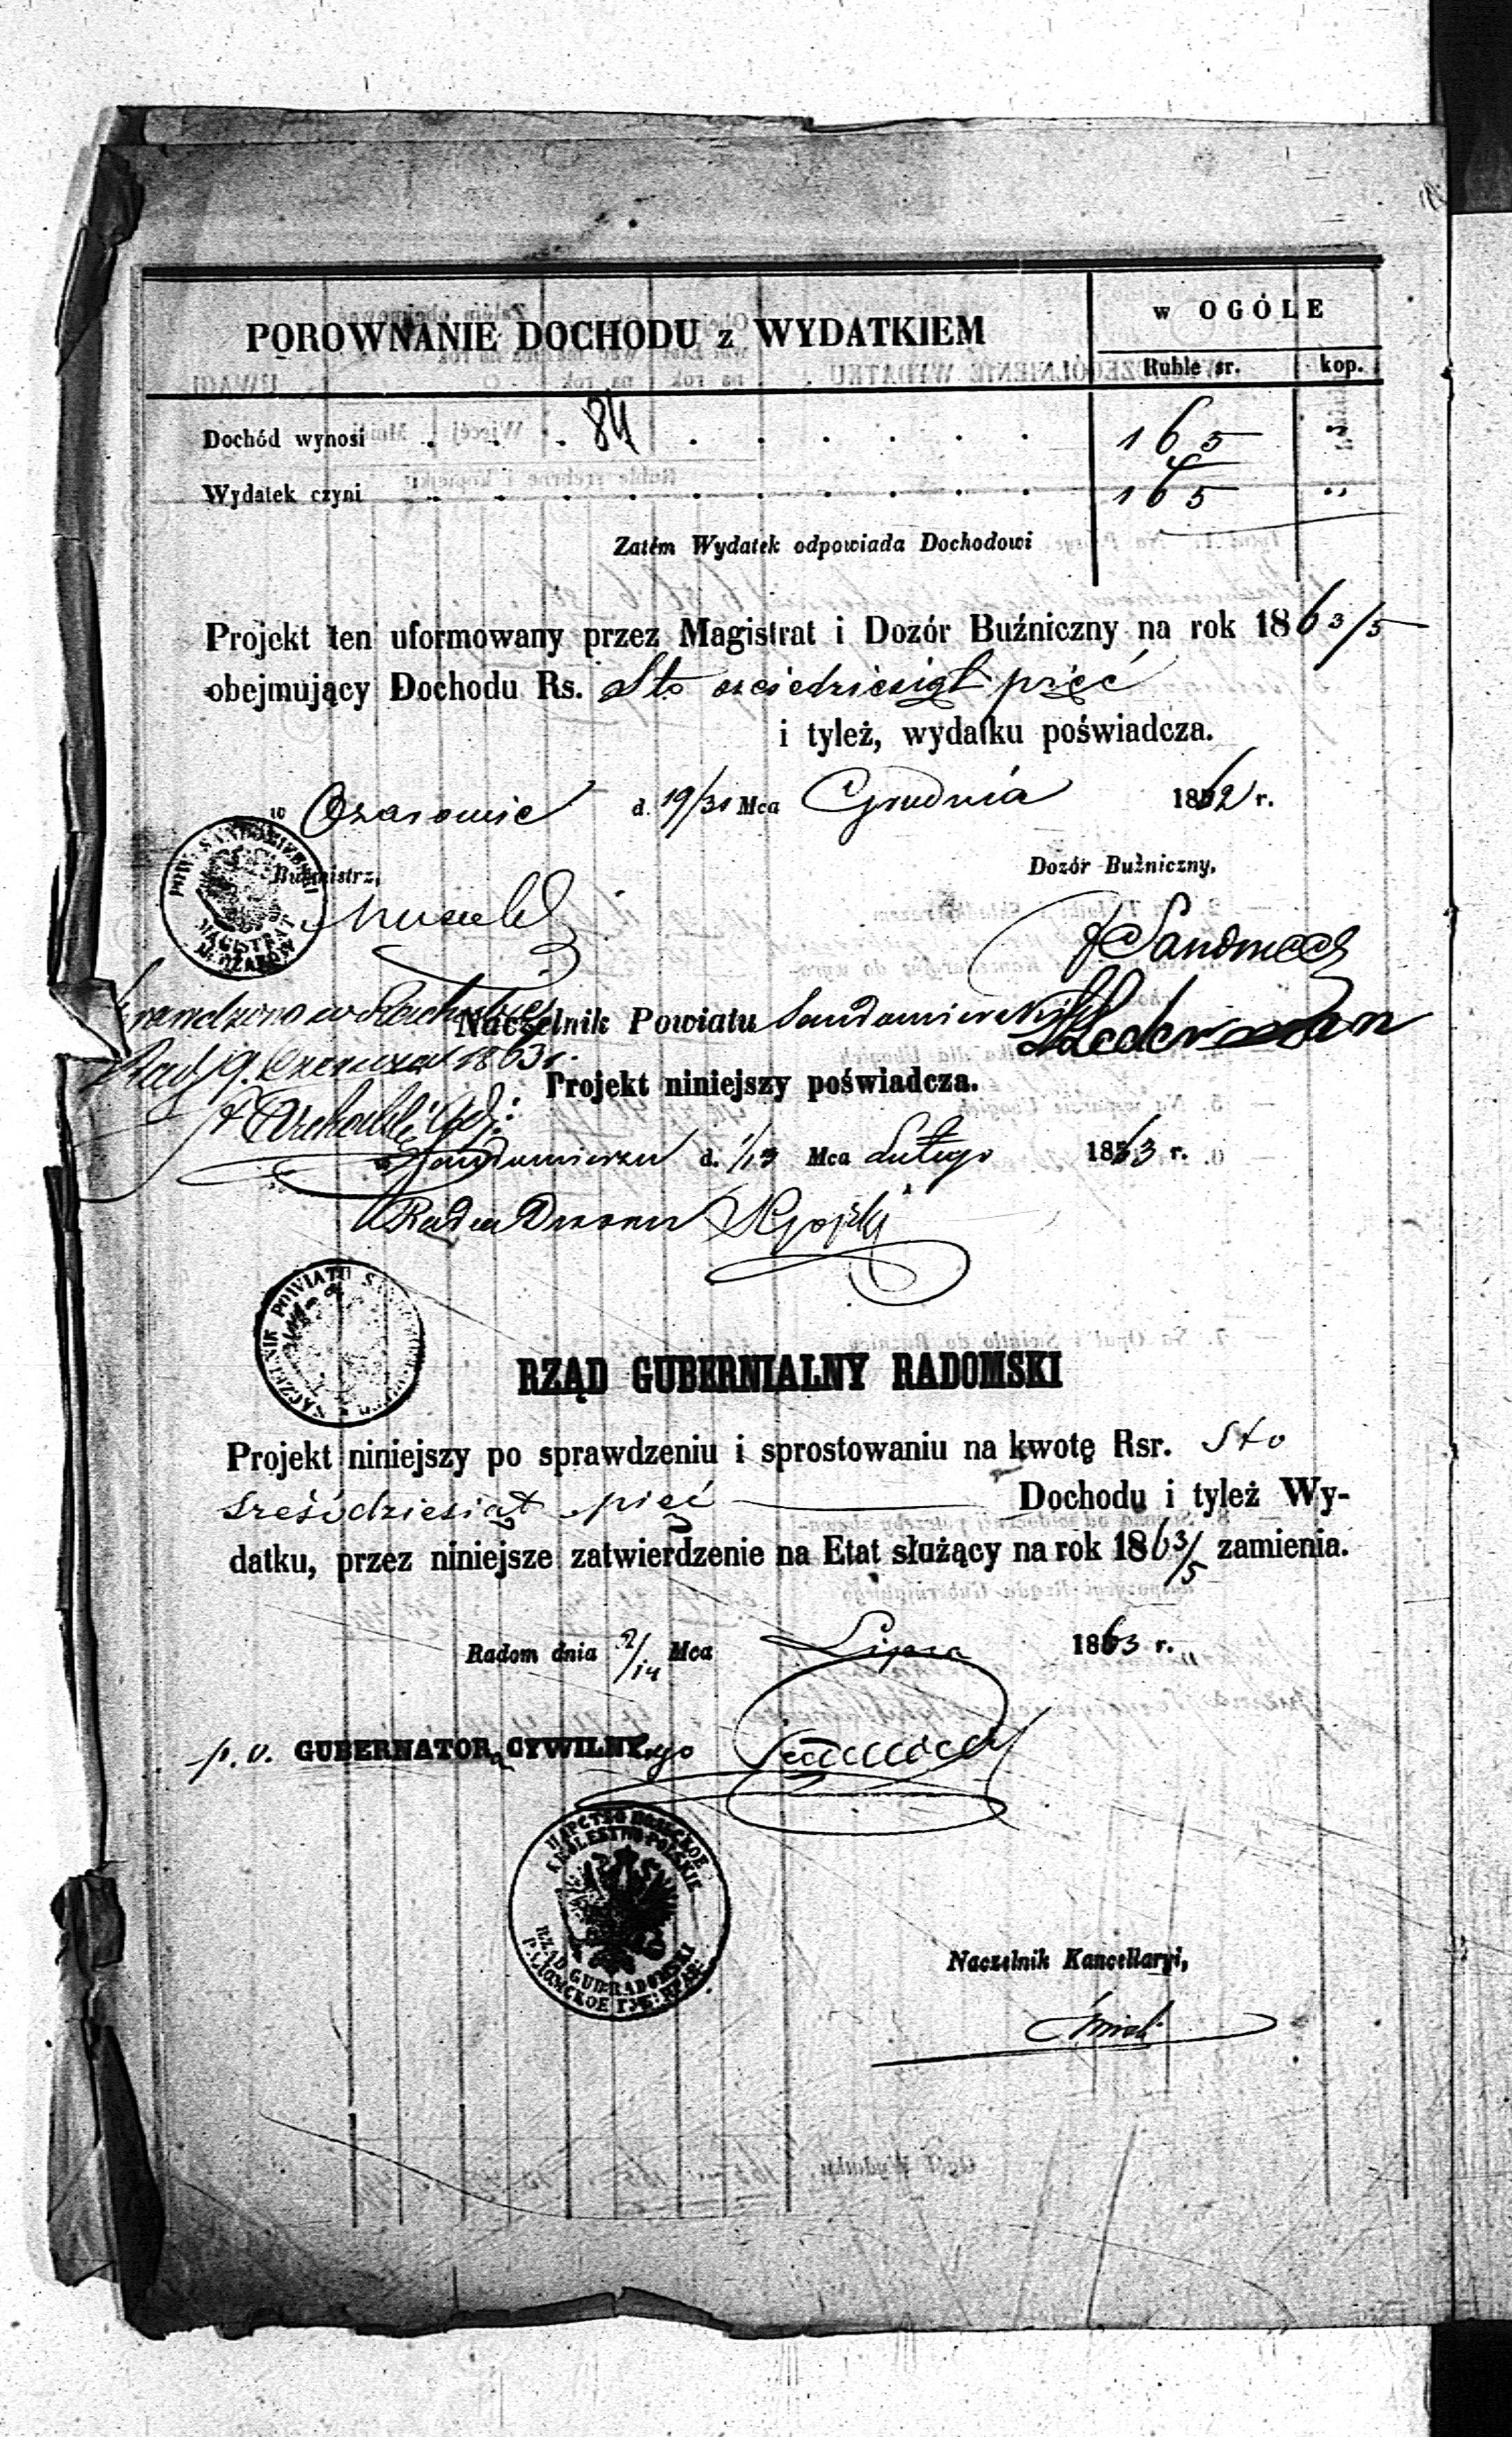 POROWNANIE DOCHODU z WYDATKIEM
w OGÓLE
Ruble sr. kop.
84
Dochód wynosi . . . . . . . . . 165 "
Wydatek czyni . . . . . . . . . . 165 "
Zatém Wydatek odpowiada Dochodowi
Projekt ten uformowany przez Magistrat i Dozór Buźniczny na rok 1863/5
obejmujący Dochodu Rs. Sto sześćdziesiąt pięć
i tyleż, wydatku poświadcza.
w Ożarowie d. 19/31 Mca Grudnia 1862 r.
Burmistrz,
Dozór Buźniczny,
POW: SANDOMIERSKI
MAGISTRAT
M. OŻARÓW
Sandmesz
Lederman
Naczelnik Powiatu Sandomierski
Sprawdzono w Rachubie
Rad. 9. Czerwca 1863 r.
Projekt niniejszy poświadcza.
w Sandomierzu d. 1/13 Mca Lutego 1863 r.
Radca Dworu
NACZELNIK POWIATU
RZĄD GUBERNIALNY RADOMSKI
Projekt niniejszy po sprawdzeniu i sprostowaniu na kwotę Rsr. Sto
sześćdziesiąt pięć Dochodu i tyleż Wy-
datku, przez niniejsze zatwierdzenie na Etat służący na rok 1863/5 zamienia.
Radom dnia 2/14 Mca Lipca 1863 r.
p. o. GUBERNATORa CYWILNego
ЦАРСТВО ПОЛЬСКОЕ
KRÓLESTWO POLSKIE
RZĄD GUB: RADOMSKI
Naczelnik Kancellaryi,